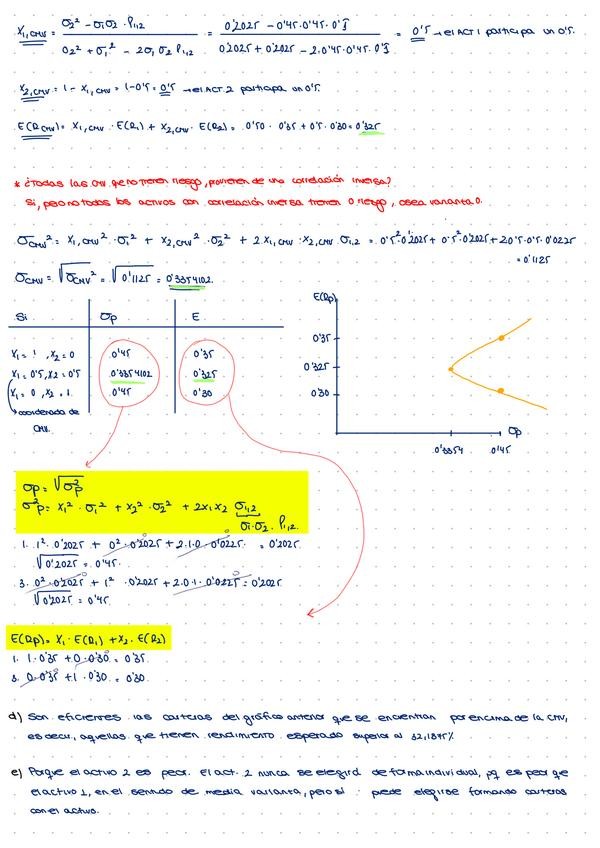 X1,CMV = σ2² - σ1σ2 · ρ1,2 / σ2² + σ1² - 2σ1 σ2 ρ1,2 = 0'2025 - 0'45·0'45· / 0'2025 + 0'2025 - 2·0'45·0'45· = 0'5 → el ACT 1 participa un 0'5.
X2,CMV = 1 - X1,CMV = 1-0'5 = 0'5 → el ACT. 2 participa un 0'5.
E(RCMV) = X1,CMV · E(R1) + X2,CMV · E(R2) = 0'50 · 0'35 + 0'5 · 0'30 = 0'325
* ¿Todas las CMV que no tienen riesgo, provienen de una correlación inversa?
Si, pero no todos los activos con correlación inversa tienen 0 riesgo, o sea varianza 0.
σCMV² = X1,CMV² · σ1² + X2,CMV² · σ2² + 2 X1,CMV · X2,CMV σ1,2 = 0'5²·0'2025 + 0'5²·0'2025 + 2·0'5·0'5·0'0225
= 0'1125
σCMV = √σCMV² = √0'1125 = 0'3354102.
Si σp E
X1 = 1 , X2 = 0 0'45 0'35
X1 = 0'5, X2 = 0'5 0'3354102 0'325
X1 = 0 , X2 = 1. 0'45 0'30
→ coordenada de
CMV.
E(Rp)
0'35
0'325
0'30
0'3354 0'45 σp
σp = √σ²p
σ²p = X1² · σ1² + X2² · σ2² + 2X1X2 σ1,2
σ1·σ2·ρ1,2.
1. 1²·0'2025 + 0²·0'2025 + 2·1·0·0'0225 0 = 0'2025
√0'2025 = 0'45.
3. 0²·0'2025 + 1²·0'2025 + 2·0·1·0'0225 0 = 0'2025
√0'2025 = 0'45.
E(Rp) = X1 · E(R1) + X2 · E(R2)
1. 1·0'35 + 0·0'30 = 0'35
3. 0·0'35 + 1·0'30 = 0'30
d) Son eficientes las carteras del gráfico anterior que se encuentran por encima de la CMV,
es decir, aquellas que tienen rendimiento esperado superior al
e) Porque el activo 2 es peor. El act. 2 nunca se elegirá de forma individual, pq es peor que
el activo 1, en el sentido de media varianza, pero si puede elegirse formando carteras
con el activo.